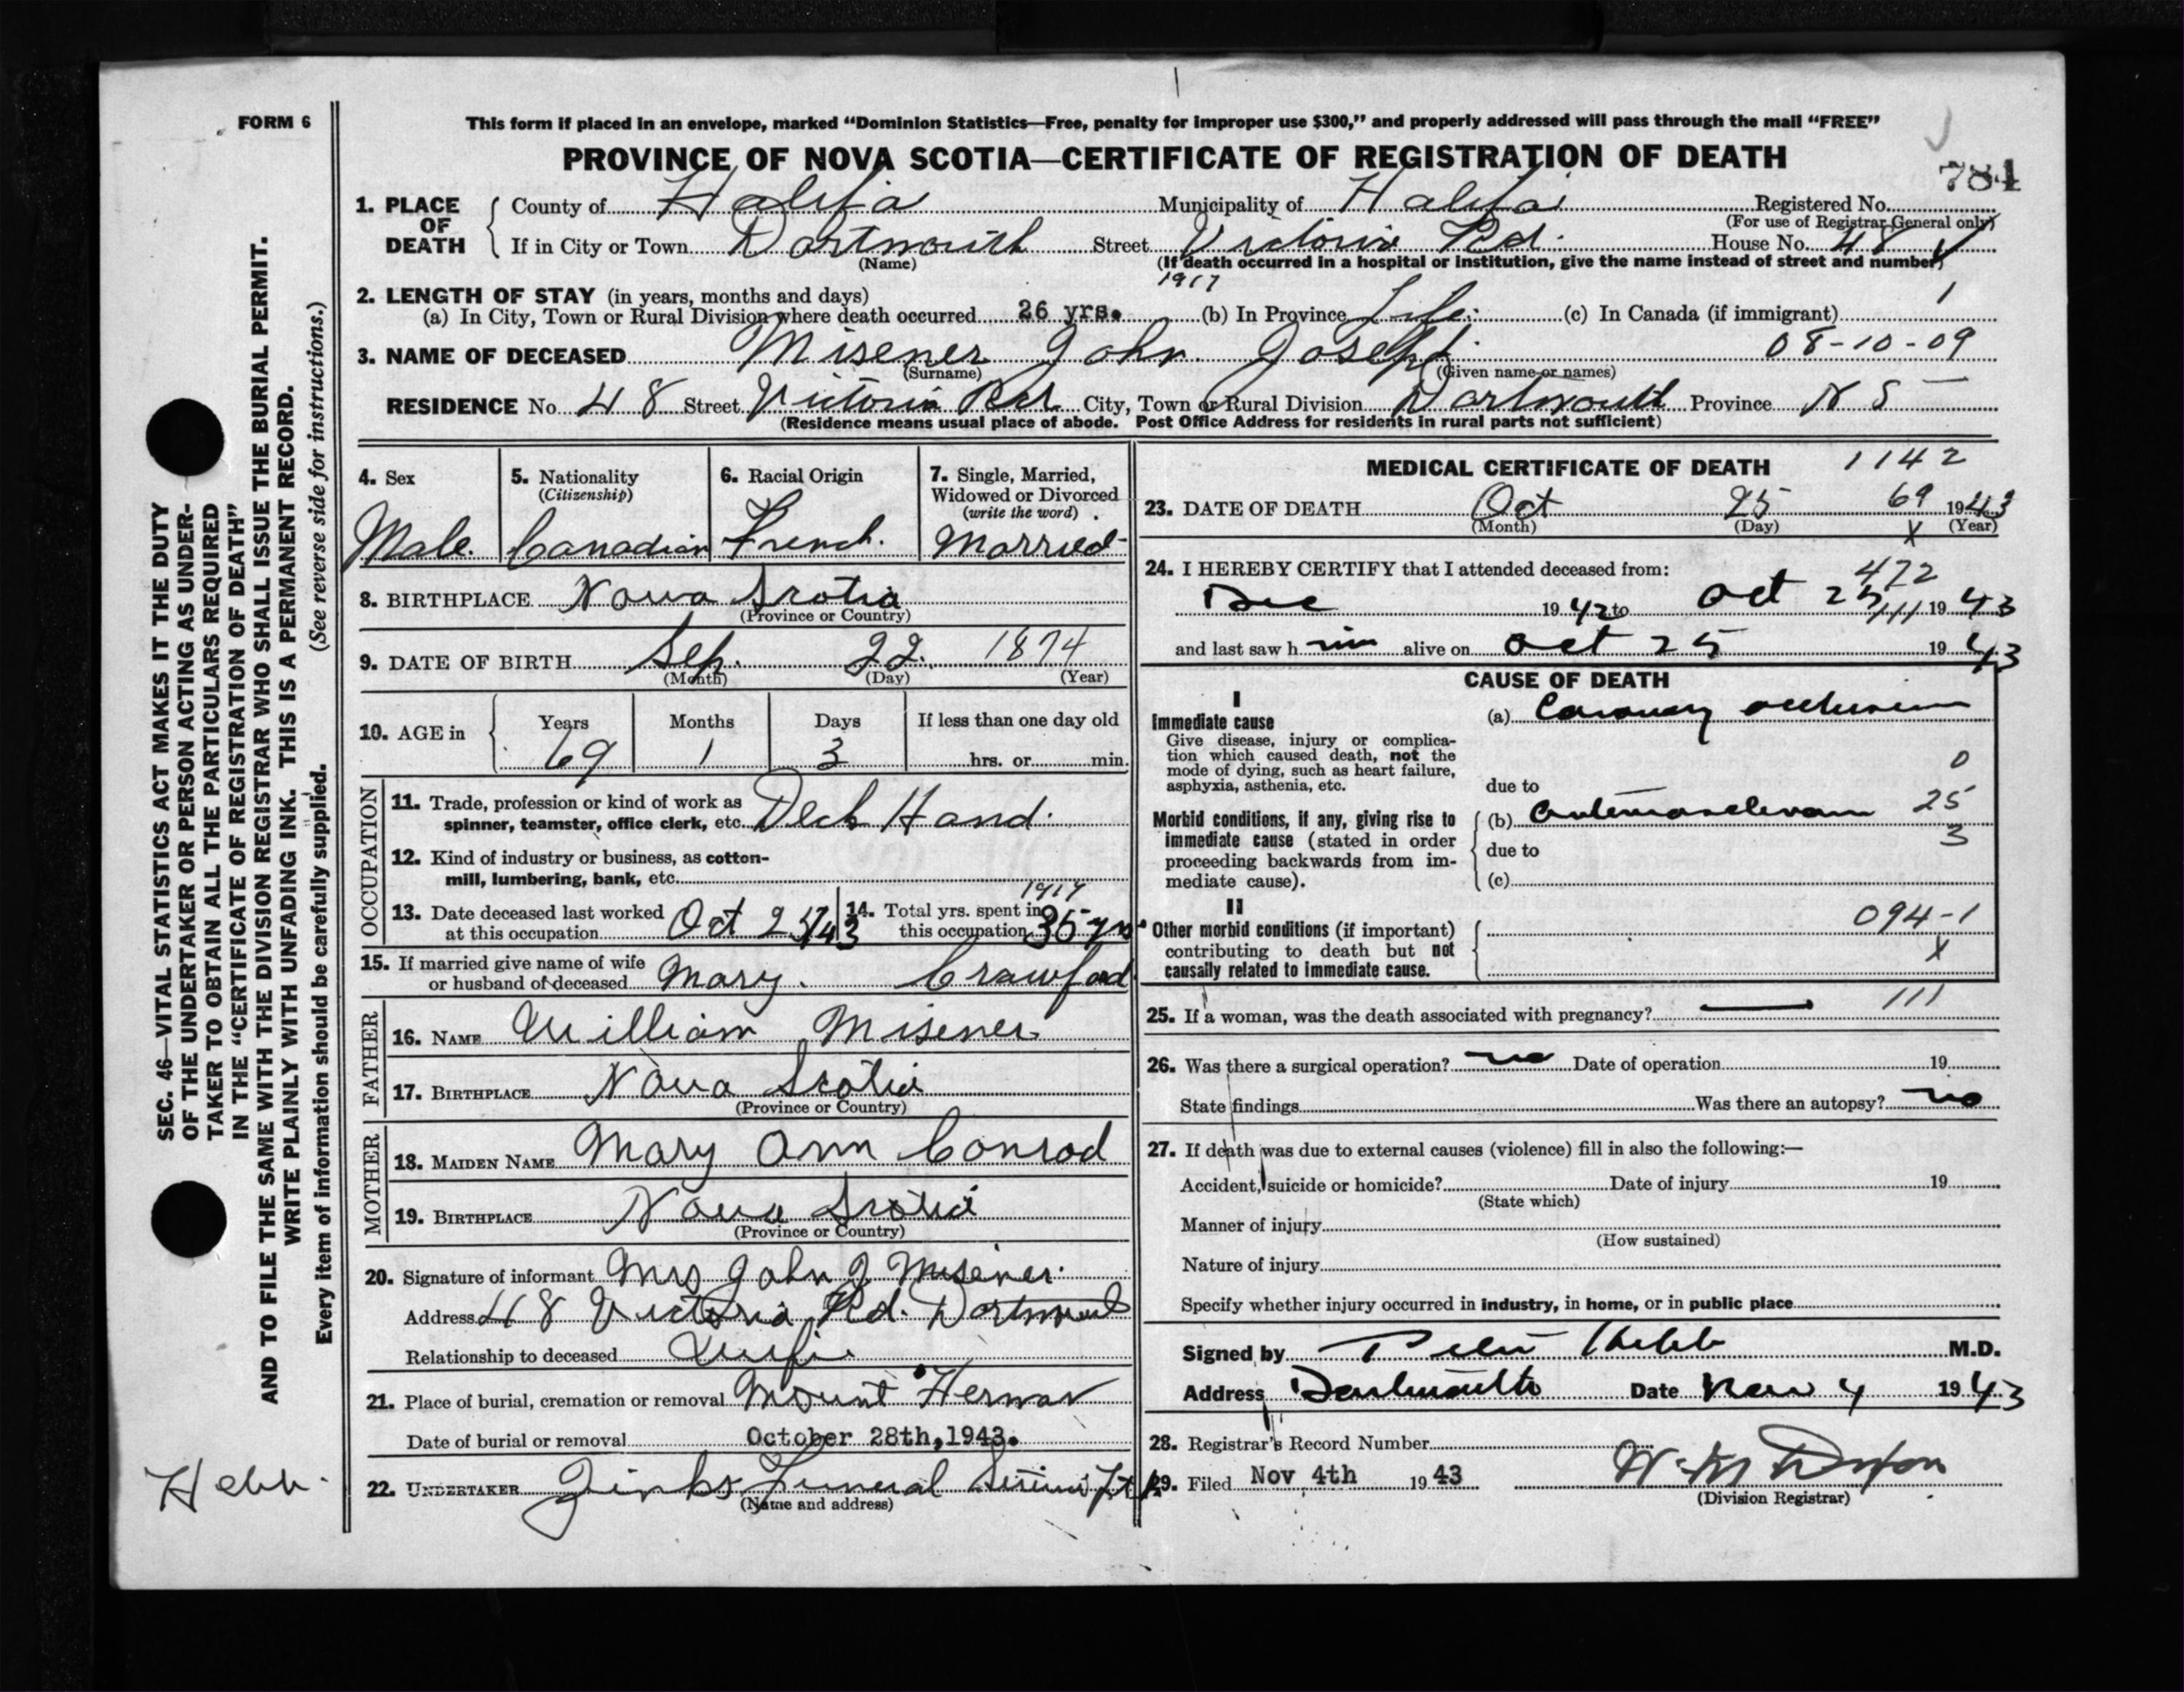 FORM 6
This form if placed in an envelope, marked “Dominion Statistics—Free, penalty for improper use $300,” and properly addressed will pass through the mail “FREE”
PROVINCE OF NOVA SCOTIA—CERTIFICATE OF REGISTRATION OF DEATH
784
1. PLACE OF DEATH { County of Halifa Municipality of Halifa Registered No.
(For use of Registrar General only)
If in City or Town Dartmouth Street Victoria Rd. House No. 48
(Name) (If death occurred in a hospital or institution, give the name instead of street and number)
1917
2. LENGTH OF STAY (in years, months and days)
(a) In City, Town or Rural Division where death occurred 26 yrs. (b) In Province Life. (c) In Canada (if immigrant) 1
3. NAME OF DECEASED Misener John Joseph 08-10-09
(Surname) (Given name or names)
RESIDENCE No. 48 Street Victoria Rd. City, Town or Rural Division Dartmouth Province N S
(Residence means usual place of abode. Post Office Address for residents in rural parts not sufficient)
4. Sex 5. Nationality 6. Racial Origin 7. Single, Married,
(Citizenship) Widowed or Divorced
(write the word)
Male. Canadian French. Married
8. BIRTHPLACE Nova Scotia
(Province or Country)
9. DATE OF BIRTH Sep. 22. 1874
(Month) (Day) (Year)
10. AGE in { Years Months Days If less than one day old
69 1 3 hrs. or min.
OCCUPATION
11. Trade, profession or kind of work as
spinner, teamster, office clerk, etc. Deck Hand.
12. Kind of industry or business, as cotton-
mill, lumbering, bank, etc.
13. Date deceased last worked
at this occupation Oct 25/43
14. Total yrs. spent in
this occupation 35 yrs
15. If married give name of wife
or husband of deceased Mary. Crawford
FATHER
16. NAME William Misener
17. BIRTHPLACE Nova Scotia
(Province or Country)
MOTHER
18. MAIDEN NAME Mary Ann Conrod
19. BIRTHPLACE Nova Scotia
(Province or Country)
20. Signature of informant Mrs John J Misener.
Address 48 Victoria Rd. Dartmouth
Relationship to deceased Wife
21. Place of burial, cremation or removal Mount Herman
Date of burial or removal October 28th, 1943.
22. UNDERTAKER Zinks Funeral Service Lt
(Name and address)
MEDICAL CERTIFICATE OF DEATH 1142
23. DATE OF DEATH Oct 25 69 1943
(Month) (Day) X (Year)
24. I HEREBY CERTIFY that I attended deceased from: 472
Dec 1942 to Oct 25 111 1943
and last saw him alive on Oct 25 1943
CAUSE OF DEATH
I
Immediate cause (a) Coronary occlusion
Give disease, injury or complica-
tion which caused death, not the
mode of dying, such as heart failure, 0
asphyxia, asthenia, etc. due to
25
Morbid conditions, if any, giving rise to (b) Arteriosclerosis
immediate cause (stated in order 3
proceeding backwards from im- due to
mediate cause). (c)
II 094-1
Other morbid conditions (if important)
contributing to death but not X
causally related to immediate cause.
25. If a woman, was the death associated with pregnancy? — 111
26. Was there a surgical operation? no Date of operation 19
State findings Was there an autopsy? no
27. If death was due to external causes (violence) fill in also the following:—
Accident, suicide or homicide? Date of injury 19
(State which)
Manner of injury
(How sustained)
Nature of injury
Specify whether injury occurred in industry, in home, or in public place
Signed by Hebb M.D.
Address Dartmouth Date Nov 4 1943
28. Registrar's Record Number
29. Filed Nov 4th 1943 W. M Dixon
(Division Registrar)
SEC. 46—VITAL STATISTICS ACT MAKES IT THE DUTY
OF THE UNDERTAKER OR PERSON ACTING AS UNDER-
TAKER TO OBTAIN ALL THE PARTICULARS REQUIRED
IN THE “CERTIFICATE OF REGISTRATION OF DEATH”
AND TO FILE THE SAME WITH THE DIVISION REGISTRAR WHO SHALL ISSUE THE BURIAL PERMIT.
WRITE PLAINLY WITH UNFADING INK. THIS IS A PERMANENT RECORD.
Every item of information should be carefully supplied. (See reverse side for instructions.)
Hebb.